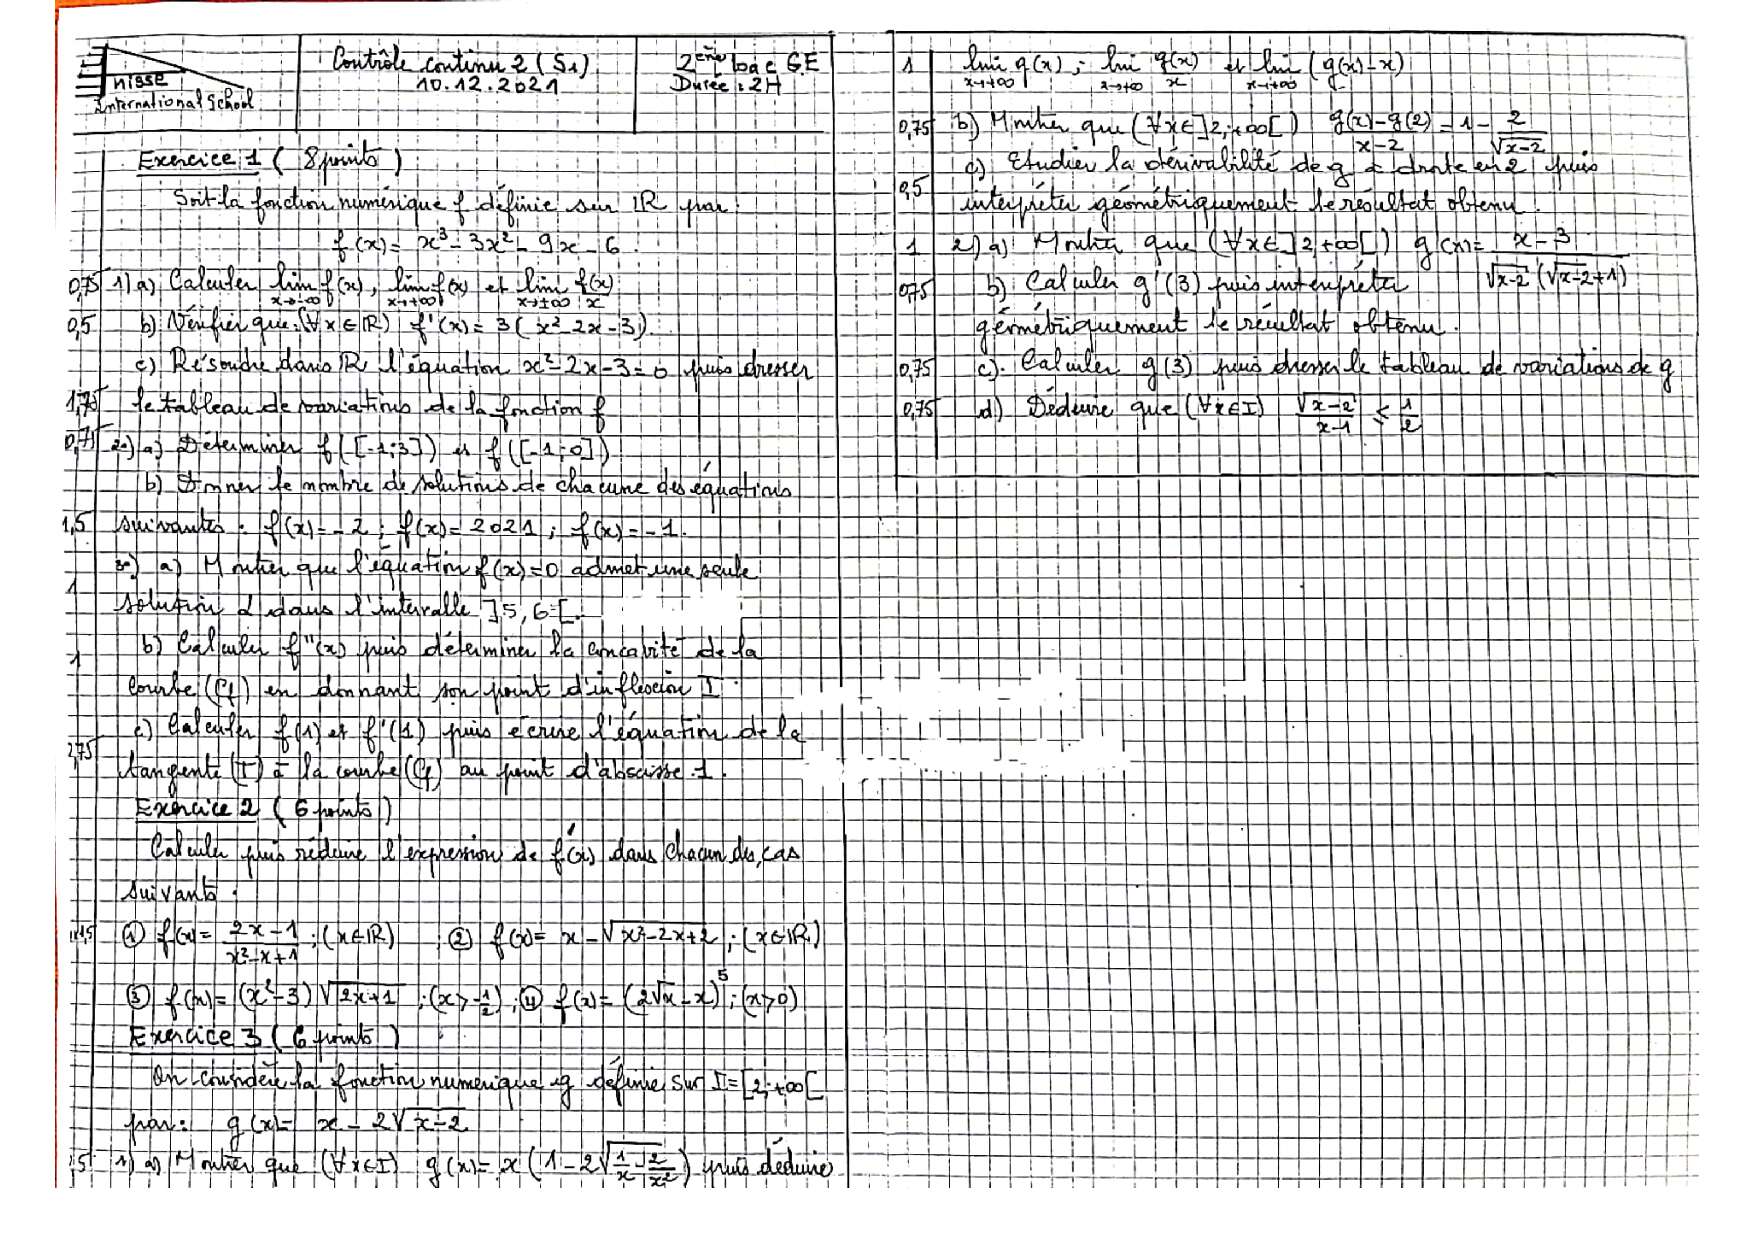 nisse
International School
Contrôle continu 2 (S1)
10.12.2021
2ème bac GE
Durée : 2H
Exercice 1 ( 8 points )
Soit la fonction numérique f définie sur IR par :
f(x) = x³ - 3x² - 9x - 6
0,75 1) a) Calculer lim x→-∞ f(x), lim x→+∞ f(x) et lim x→±∞ f(x)/x
0,5 b) Vérifier que : (∀x∈IR) f'(x) = 3(x² - 2x - 3)
c) Résoudre dans IR l'équation x² - 2x - 3 = 0 puis dresser
1,75 le tableau de variations de la fonction f
0,75 2°) a) Déterminer f([-1;3]) et f([-1;0])
b) Donner le nombre de solutions de chacune des équations
1,5 suivantes : f(x) = -2 ; f(x) = 2021 ; f(x) = -1.
3°) a) Montrer que l'équation f(x)=0 admet une seule
1 solution α dans l'intervalle ]5,6[.
b) Calculer f''(x) puis déterminer la concavité de la
1 courbe (Cf) en donnant son point d'inflexion I.
c) Calculer f(1) et f'(1) puis écrire l'équation de la
0,75 tangente (T) à la courbe (Cf) au point d'abscisse 1.
Exercice 2 ( 6 points )
Calculer puis réduire l'expression de f'(x) dans chacun des cas
suivants :
① f(x) = (2x-1)/(x²-x+1) ; (x∈IR) ; ② f(x) = x - √(x²-2x+2) ; (x∈IR)
③ f(x) = (x²-3)√(2x+1) ; (x>-1/2) ; ④ f(x) = (2√x - x)⁵ ; (x>0)
Exercice 3 ( 6 points )
On considère la fonction numérique g définie sur I = [2;+∞[
par : g(x) = x - 2√(x-2)
1) a) Montrer que (∀x∈I) g(x) = x(1 - 2√(1/x - 2/x²)) puis déduire
1 lim x→+∞ g(x) ; lim x→+∞ g(x)/x et lim x→+∞ (g(x)-x)
0,75 b) Montrer que (∀x∈]2;+∞[) (g(x)-g(2))/(x-2) = 1 - 2/√(x-2)
c) Etudier la dérivabilité de g à droite en 2 puis
0,5 interpréter géométriquement le résultat obtenu.
1 2) a) Montrer que (∀x∈]2,+∞[) g'(x) = (x-3)/(√(x-2)(√(x-2)+1))
0,75 b) Calculer g'(3) puis interpréter
géométriquement le résultat obtenu.
0,75 c) Calculer g(3) puis dresser le tableau de variations de g
0,75 d) Déduire que (∀x∈I) √(x-2)/(x-1) ≤ 1/2